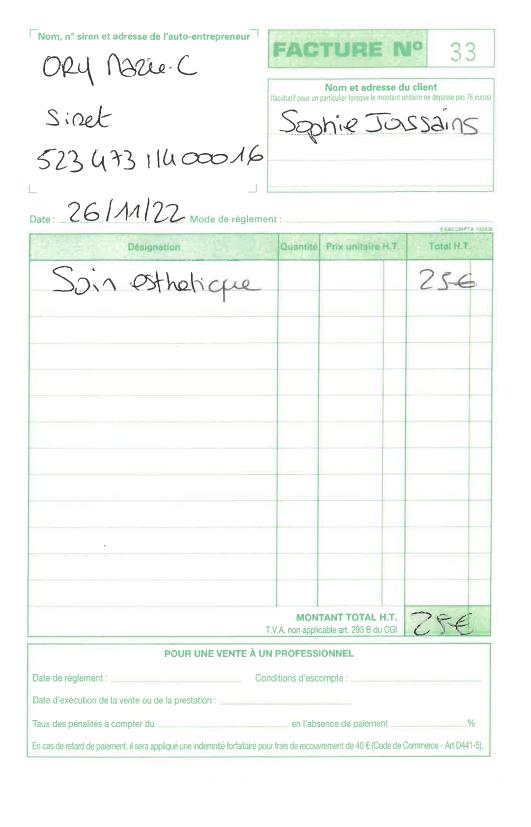 Nom, n° siren et adresse de l'auto-entrepreneur
ORY Marie-C
Siret
523 473 114 00016
FACTURE N° 33
Nom et adresse du client
(facultatif pour un particulier lorsque le montant unitaire ne dépasse pas 76 euros)
Sophie Jossains
Date : 26/11/22 Mode de règlement :
EXACOMPTA
Désignation Quantité Prix unitaire H.T. Total H.T.
Soin esthetique 25€
MONTANT TOTAL H.T. 25€
T.V.A. non applicable art. 293 B du CGI
POUR UNE VENTE À UN PROFESSIONNEL
Date de règlement : Conditions d'escompte :
Date d'exécution de la vente ou de la prestation :
Taux des pénalités à compter du en l'absence de paiement %
En cas de retard de paiement, il sera appliqué une indemnité forfaitaire pour frais de recouvrement de 40 € (Code de Commerce - Art D441-5).